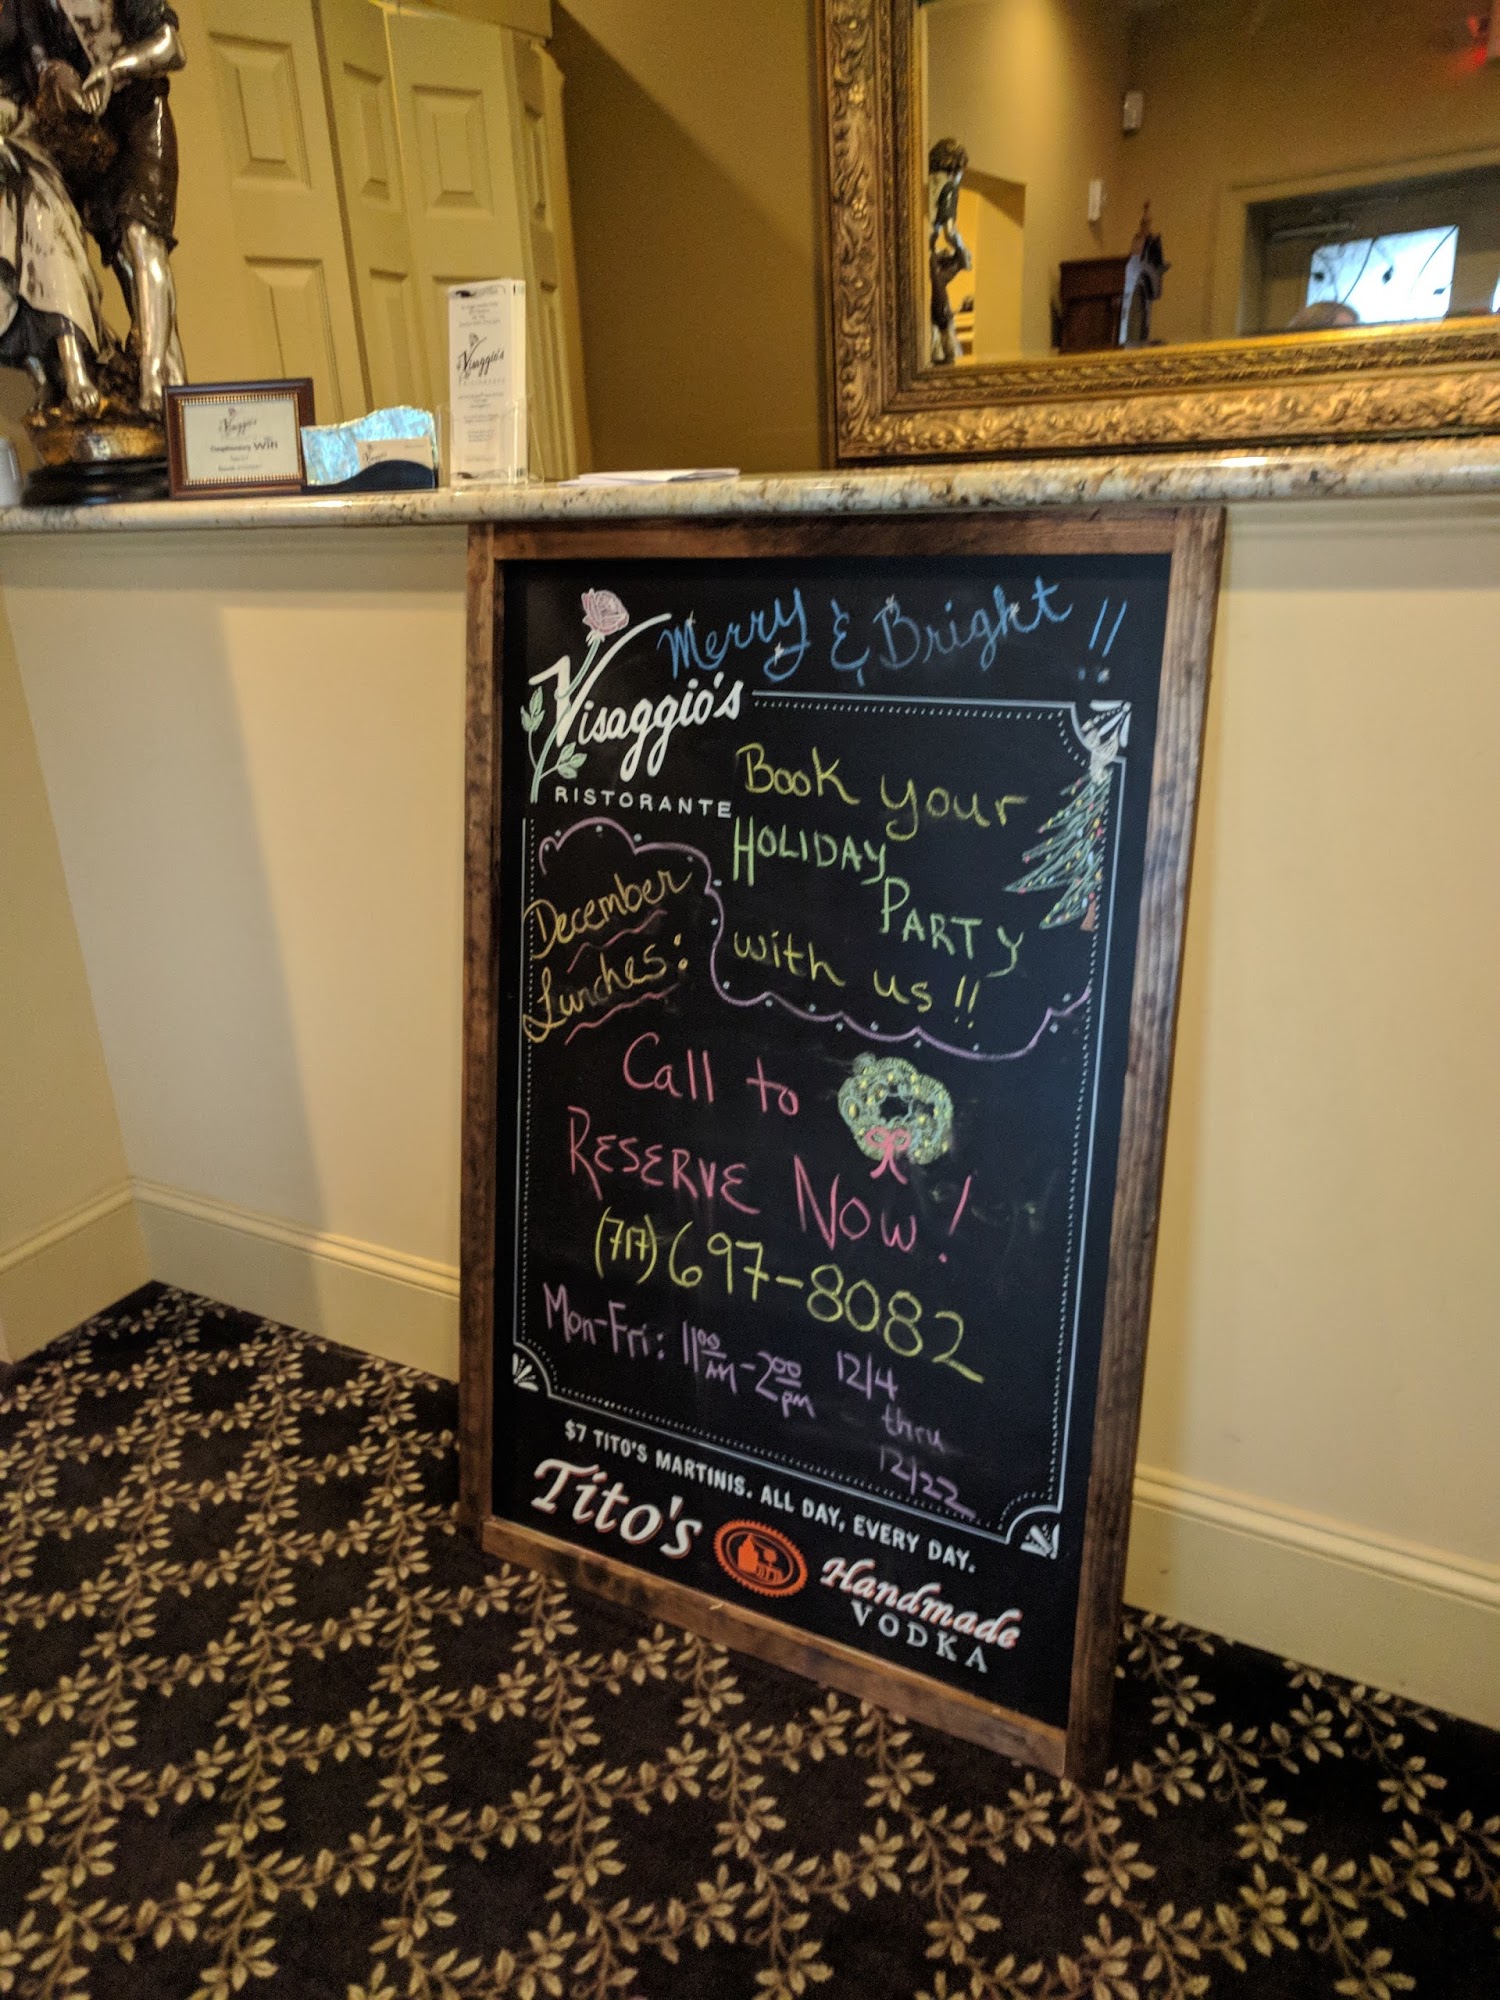 Visaggio's
Complimentary Wifi
Visaggio's
Visaggio's
RISTORANTE
Merry & Bright!!
Visaggio's
RISTORANTE
Book your
HOLIDAY
PARTY
with us!!
December
Lunches:
Call to
RESERVE NOW!
(717) 697-8082
Mon-Fri: 1100 AM - 200 pm
12/4
thru
12/22
$7 TITO'S MARTINIS. ALL DAY, EVERY DAY.
Tito's
Handmade
VODKA